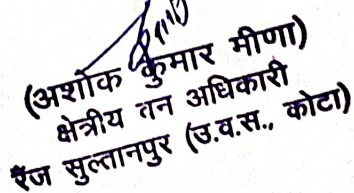 (अशोक कुमार मीणा)
क्षेत्रीय तन अधिकारी
रेंज सुल्तानपुर (उ.व.स., कोटा)